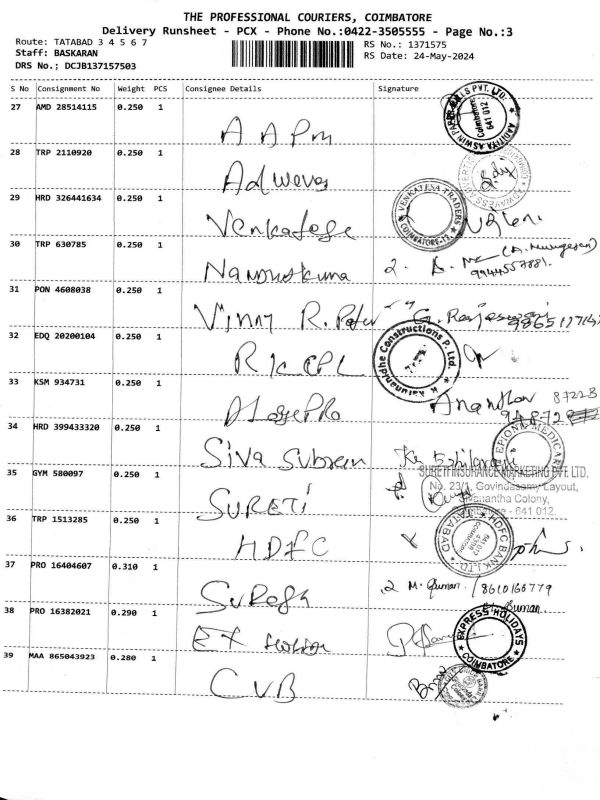 THE PROFESSIONAL COURIERS, COIMBATORE
Delivery Runsheet - PCX - Phone No.:0422-3505555 - Page No.:3
Route: TATABAD 3 4 5 6 7
Staff: BASKARAN
DRS No.; DCJB137157503
RS No.: 1371575
RS Date: 24-May-2024
S No Consignment No Weight PCS Consignee Details Signature
27 AMD 28514115 0.250 1
AADITYA ASWIN PAPER MILLS PVT. LTD.
Coimbatore 641 012
A A Pm
28 TRP 2110920 0.250 1
29 HRD 326441634 0.250 1
VENKATESA TRADERS
COIMBATORE-12
Venkatese
30 TRP 630785 0.250 1
2. (A. Murugesan)
9944557881.
31 PON 4608038 0.250 1
Vinny R. Peter G. Rajeswari
32 EDQ 20200104 0.250 1
K. Karunandhe Constructions P. Ltd.
R K CPL
33 KSM 934731 0.250 1
Anandhan 87223
34 HRD 399433320 0.250 1
EPIONE MEDICARE
Siva Subram
35 GYM 580097 0.250 1
SURETI INSURANCE MARKETING PVT. LTD.
No. 23/1, Govindasamy Layout,
Colony,
- 641 012.
SURETI
36 TRP 1513285 0.250 1
HDFC BANK LTD.
TATABAD
641 012
COIMBATORE
HDFC
37 PRO 16404607 0.310 1
2 M. Suman / 8610166779
Suresh
M. Suman.
38 PRO 16382021 0.290 1
EXPRESS HOLIDAYS
COIMBATORE
39 MAA 865043923 0.280 1
CVB